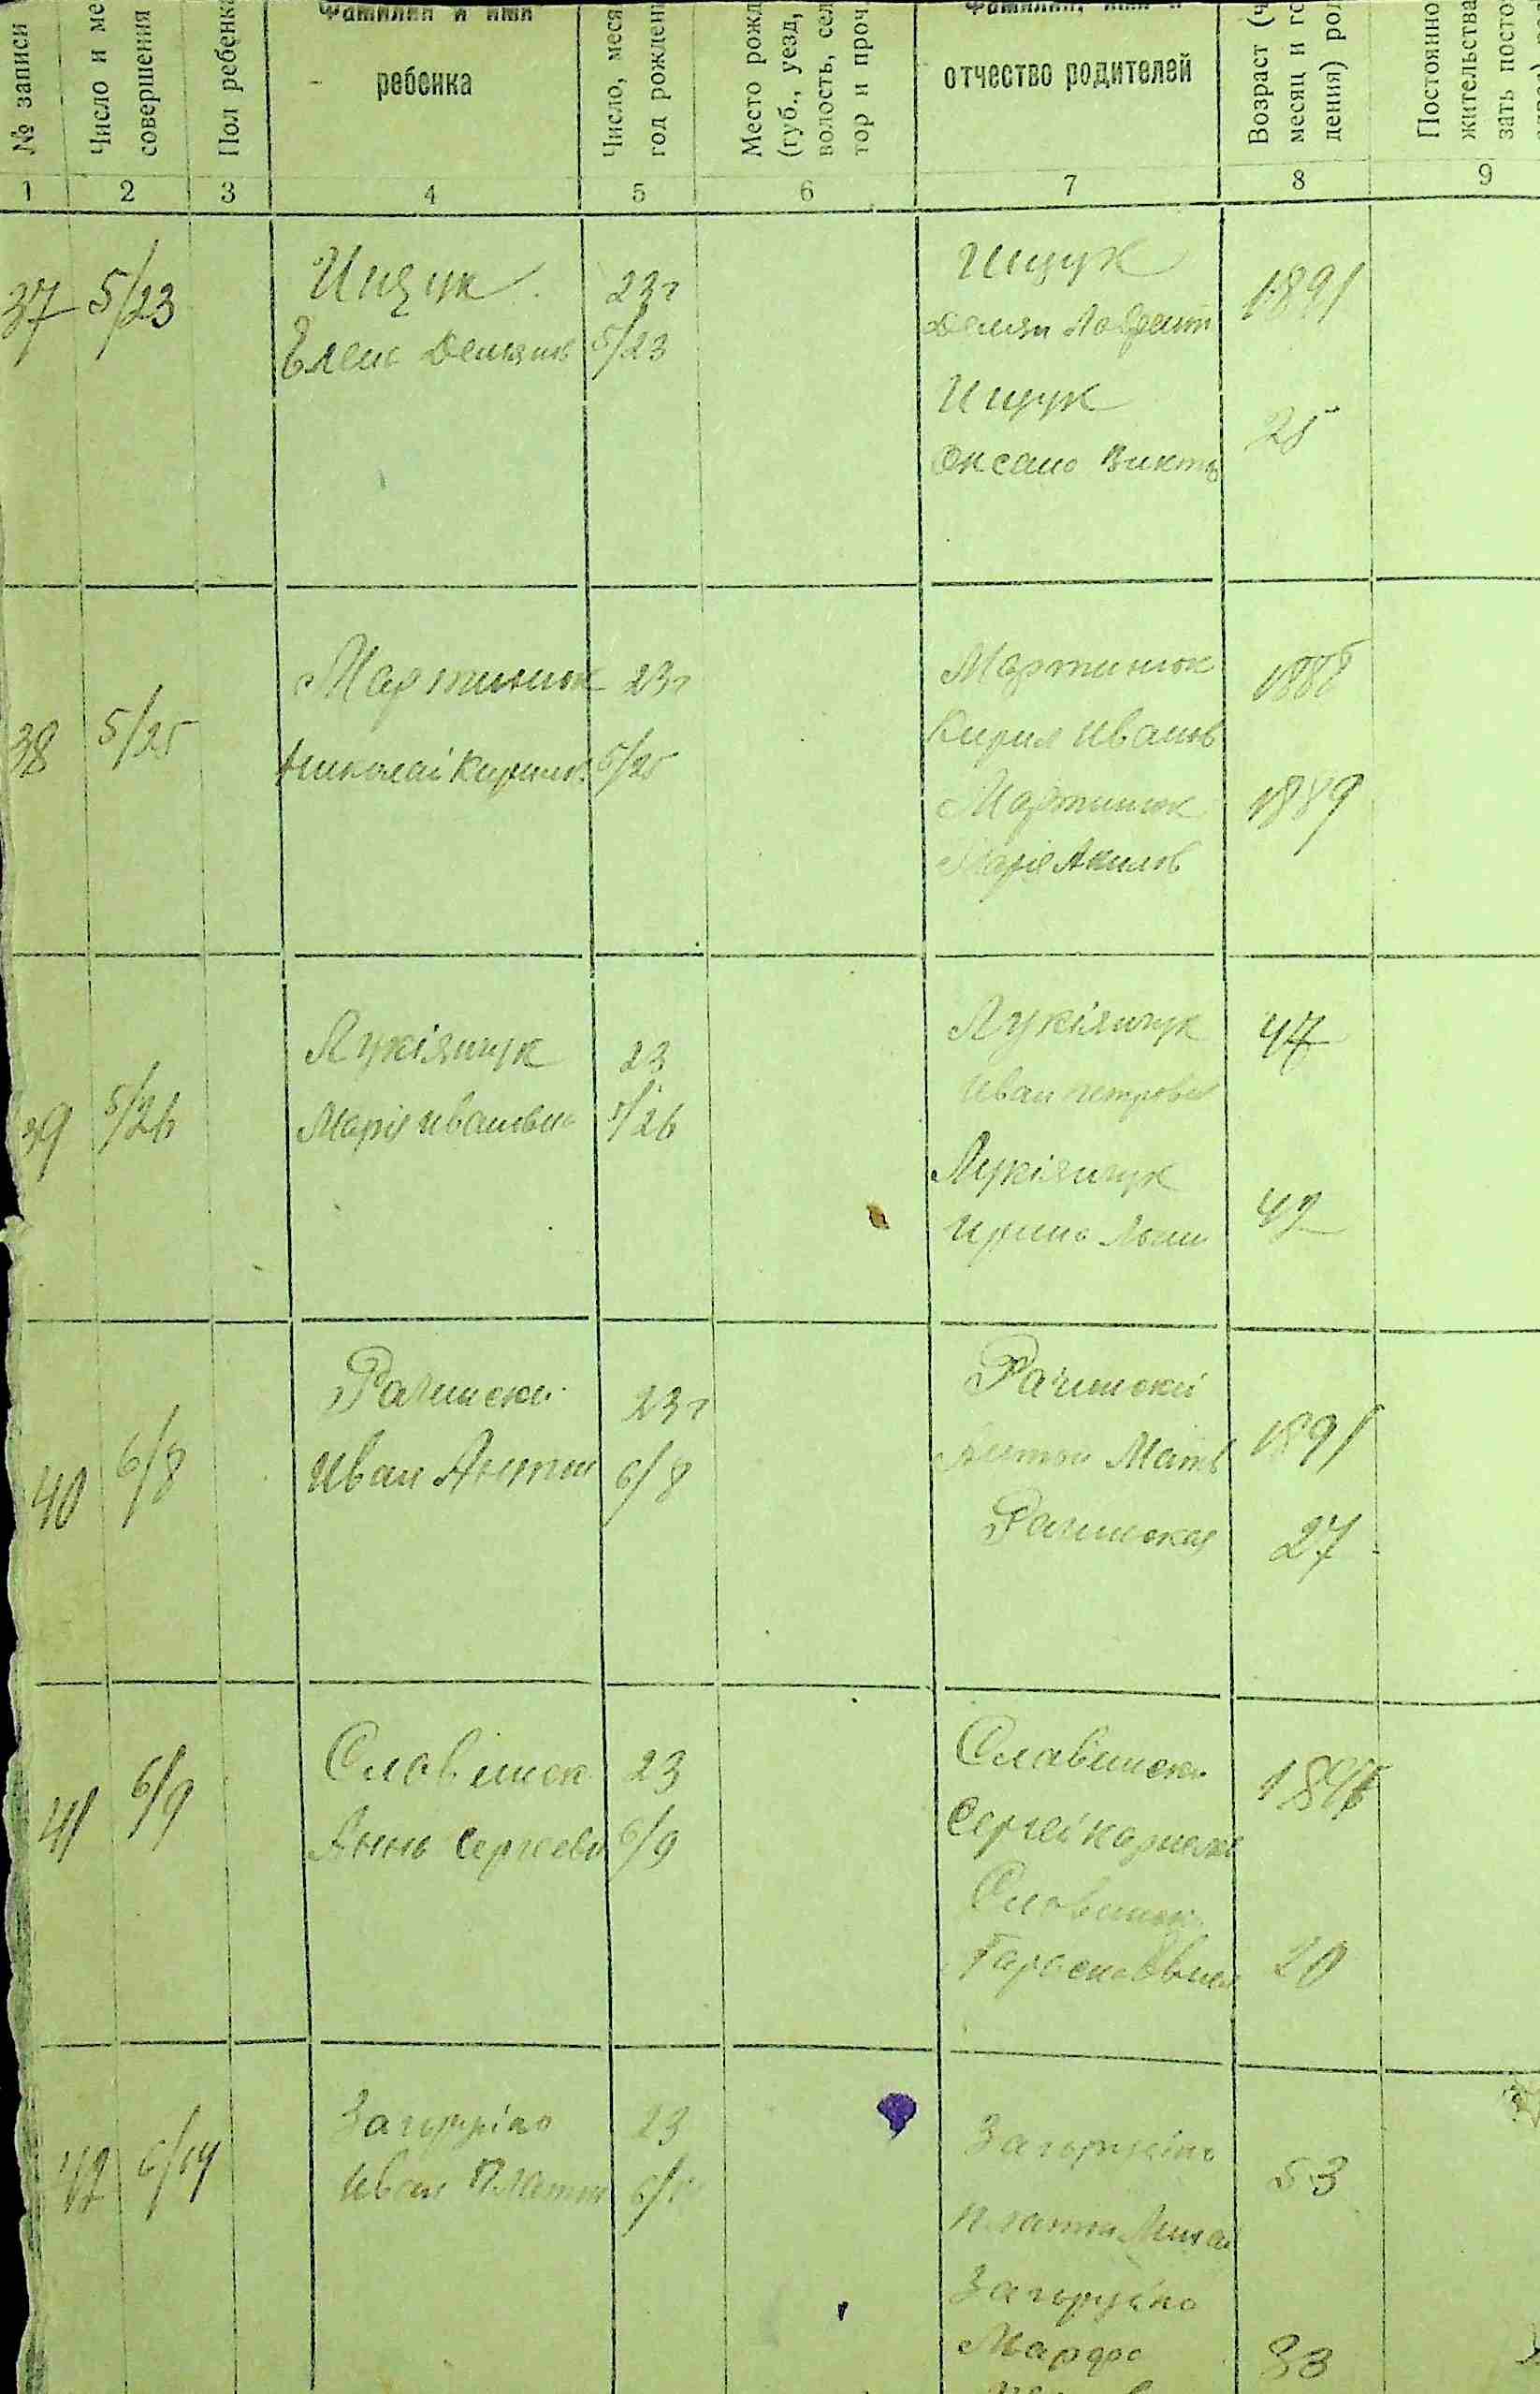 № записи
Число и ме
совершения
Пол ребенка
Фамилия и имя
ребенка
Число, меся
год рожден
Место рожд
(губ., уезд,
волость, сел
тор и проч.
Фамилия, имя и
отчество родителей
Возраст (ч
месяц и го
дения) род
Постоянно
жительства
зать посто
1 2 3 4 5 6 7 8 9
37 5/23
Ищук
Елено Демянов
23г
5/23
Ищук
Демян Лаврент
1891
Ищук
Оксано Викто
25
38 5/25
Мартинюк
Николаі Кирилов
23г
5/25
Мартинюк
Кирил Иванов
188
Мартинюк
Марія Акилов
1889
39 5/26
Лукіянчук
Марія Ивановно
23
5/26
Лукіянчук
Иван Петрович
47
Лукіянчук
Ирино
42
40 6/8
Рачински
Иван Антон
23г
6/8
Рачинскиі
Антон Матв
1891
Рачинская
27
41 6/9
Славінск
Анно Сергеевн
23
6/9
Славински
Сергеі Корнеев
189
Славинск
20
42 6/14
Загоруіко
Иван Платон
23
6/1
Загоруіко
Платон Миха
53
Загоруіко
Марфо
33